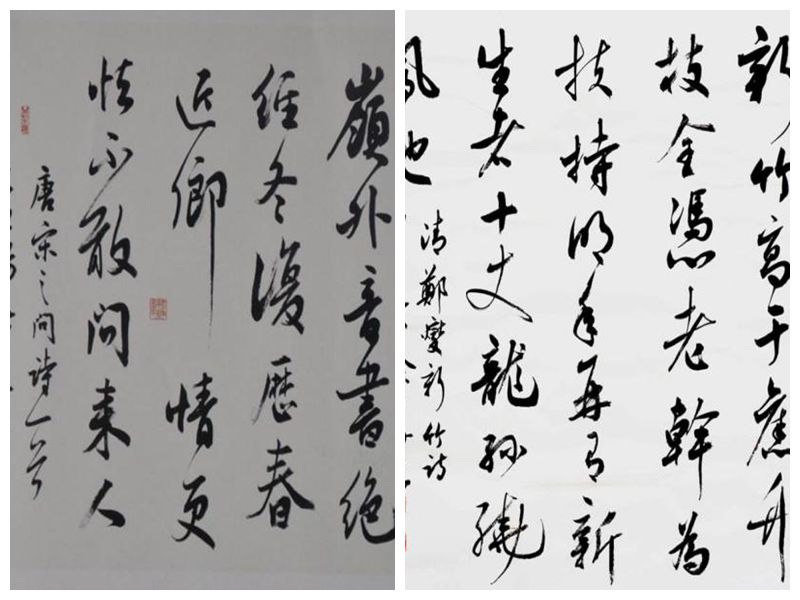 嶺外音書絕
經冬復歷春
近鄉情更
怯不敢問來人
唐宋之問詩一首
新竹高于舊竹
枝全憑老幹為
扶持明年再有新
生者十丈龍孫繞
鳳池
清鄭燮新竹詩